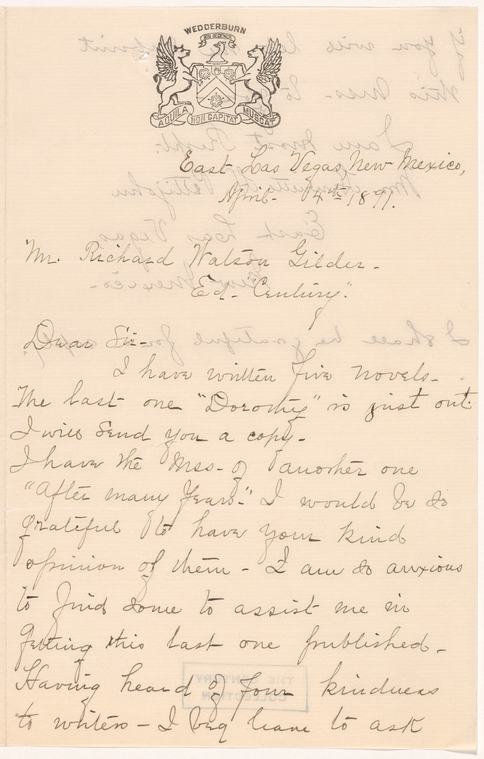 WEDDERBURN
NON DEGENER
AQUILA NON CAPITAT MUSCAS
East Las Vegas, New Mexico,
April - 4th 1897.
Mr. Richard Watson Gilder -
Ed - Century".
Dear Sir -
I have written five novels -
The last one "Dorothy" is just out
I will send you a copy -
I have the Mss - of another one
"After many Years" - I would be so
grateful to have your kind
opinion of them - I am so anxious
to find some to assist me in
getting this last one published -
Having heard of your kindness
to writers - I beg leave to ask
THE CENTURY
COLLECTION